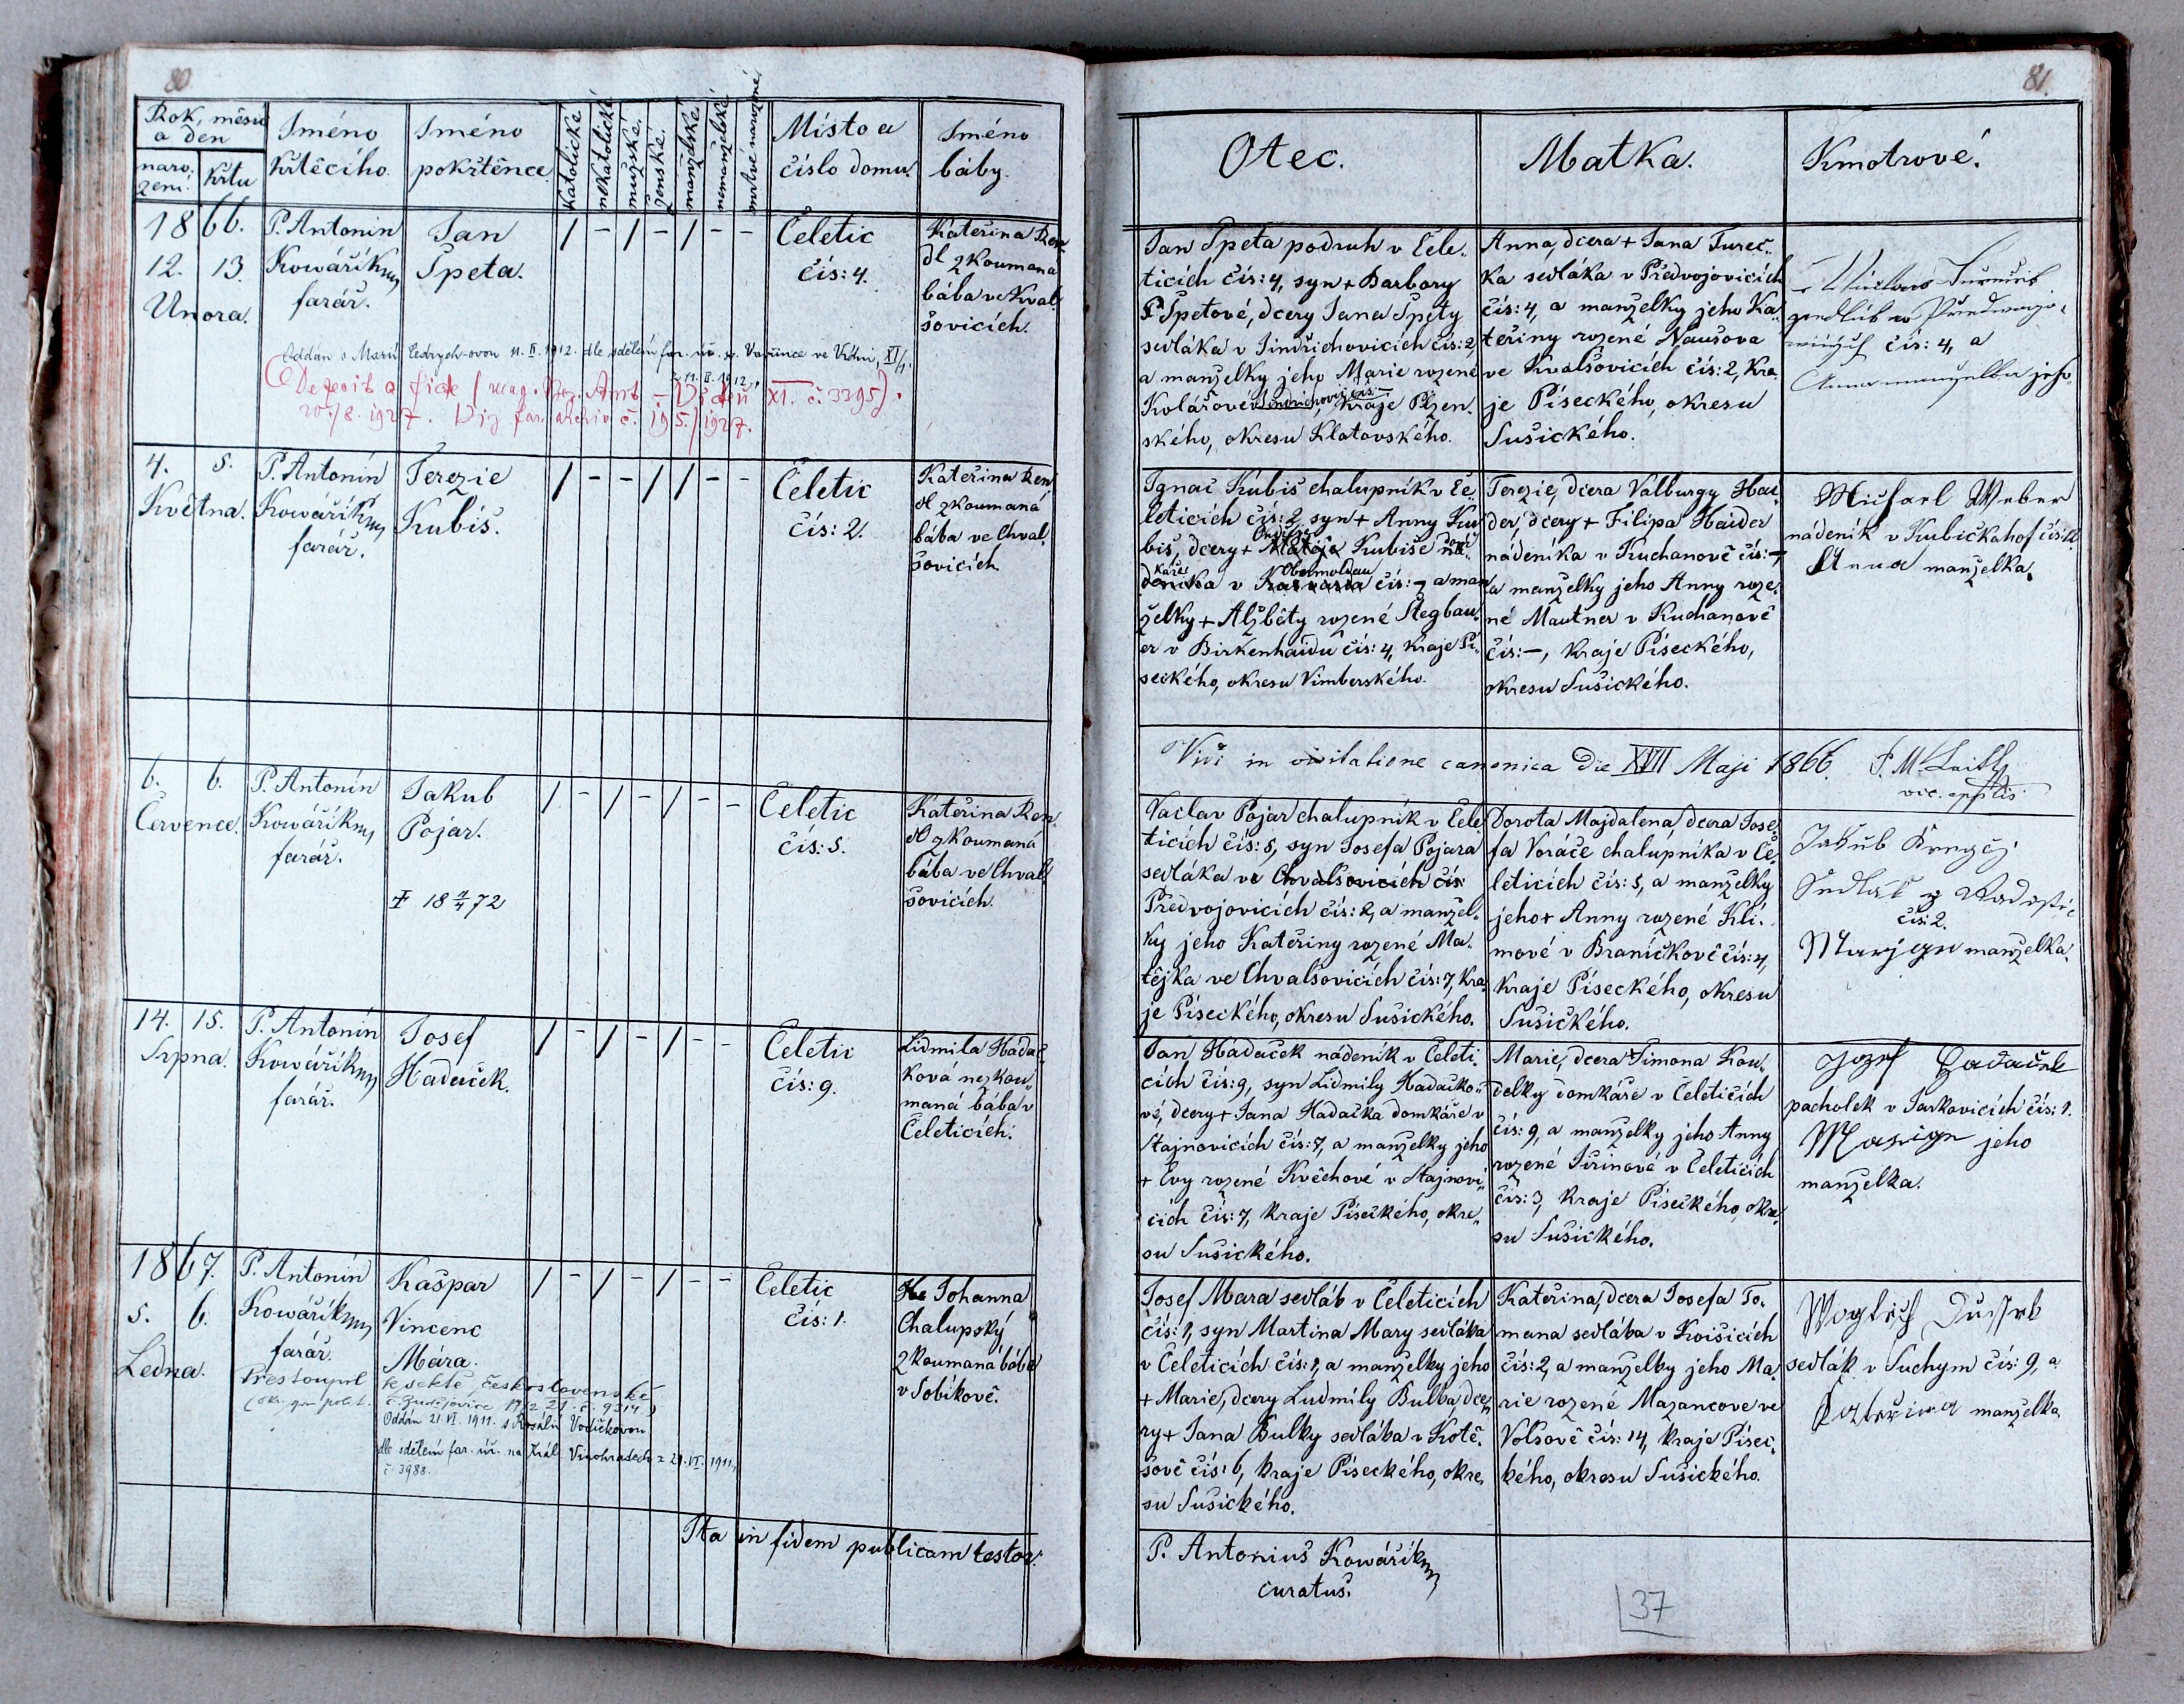 80
Rok, měsíc
a den
naro-
zení.
křtu
Jméno
křtěcího.
Jméno
pokřtěnce.
katolické
nekatolické
mužské.
ženské.
manželské
nemanželské
mrtvě narozené
Místo a
číslo domu.
Jméno
báby.
1866.
12. 13.
Unora.
P. Antonin
Kowářík
farář.
Jan
Špeta.
/ - / - / - -
Čeletic
čís: 4.
Kateřina Ren-
dl zkoumaná
bába ve Hval-
šovicích.
Oddán s Marií 11. II. 1912. dle sdělení far. úř. sv. ve Vídni, XI/1.
11. II. 1912.
20./8. 1927. Viz far. archiv č. 195./1927.
4. 5.
Května.
P. Antonín
Kowářík
farář.
Terezie
Kubiš.
/ - - / / - -
Čeletic
čís: 2.
Kateřina Ren-
dl zkoumaná
bába ve Chval-
šovicích
6. 6.
Července.
P. Antonín
Kowářík
farář.
Jakub
Pojar.
/ - / - / - -
Čeletic
čís: 5.
Kateřina Ren-
dl zkoumaná
bába ve Chval-
šovicích.
14. 15.
Srpna.
P. Antonín
Kowářík
farář.
Josef
Hadaček.
/ - / - / - -
Čeletic
čís: 9.
Lidmila Hadač-
ková nezkou-
maná bába v
Čeleticích.
1867.
5. 6.
Ledna.
P. Antonín
Kowářík
farář.
Kašpar
Vincenc
Mára.
/ - / - / - -
Čeletic
čís: 1.
Johanna
Chalupský
zkoumaná bába
v Sobíkově.
Přestoupil
k sektě, československé
Oddán 21. VI. 1911. s Rosálií Vodičkovou
dle sdělení far. úř. na Král. Vinohradech z 21. VI. 1911,
č. 3988.
Ita in fidem publicam testor.
81.
Otec.
Matka.
Kmotrové.
Jan Špeta podruh v Čele-
ticích čís: 4, syn + Barbory
Špetové, dcery Jana Špety
sedláka v Jindřichovicích čís: 2,
a manželky jeho Marie rozené
Kolářové, kraje Plzen-
ského, okresu Klatovského.
Anna, dcera + Jana Tureč-
ka sedláka v Předvojovicích
čís: 4, a manželky jeho Ka-
teřiny rozené Naušova
ve Hvalšovicích čís: 2, kra-
je Píseckého, okresu
Sušického.
čís: 4, a
Anna manželka jeho
Ignac Kubiš chalupník v Če-
leticích čís: 2, syn + Anny Ku-
biš, dcery + Matěje Kubiše
v Obermoldau čís: - a man-
želky + Alžběty rozené Stegbau-
er v Birkenhaidu čís: 4, kraje Pí-
seckého, okresu Vimberského.
Terezie, dcera Valburgy Hai-
der, dcery + Filipa Haider
nádeníka v Kuchanově čís: -,
a manželky jeho Anny roze-
né Mautner v Kuchanově
čís: -, kraje Píseckého,
okresu Sušického.
Michael Weber
nádeník v Kubičkahof čís:
Anna manželka.
Vidi in visitatione canonica die XVII Maji 1866.
Vaclav Pojar chalupník v Čele-
ticích čís: 5, syn Josefa Pojara
sedláka ve Chvalšovicích čís:
Předvojovicích čís: 2, a manžel-
ky jeho Kateřiny rozené Ma-
tějka ve Chvalšovicích čís: 7, kra-
je Píseckého, okresu Sušického.
Dorota Majdalena, dcera Jose-
fa Voráče chalupníka v Če-
leticích čís: 5, a manželky
jeho + Anny rozené Kli-
mové v Braničkově čís: 4,
kraje Píseckého, okresu
Sušického.
Jakub Krejčj
Sedlák z Radostic
čís: 2.
Maryana manželka.
Jan Hadaček nádeník v Čeleti-
cích čís: 9, syn Lidmily Hadačko-
vé, dcery + Jana Hadačka domkáře v
Stajnovicích čís: 7, a manželky jeho
+ Evy rozené Květhové v Stajnovi-
cích čís: 7, kraje Píseckého, okre-
su Sušického.
Marie, dcera Šimona Kou-
delky domkáře v Čeleticích
čís: 9, a manželky jeho Anny
rozené Jiřinové v Čeleticích
čís: 3, kraje Píseckého, okre-
su Sušického.
Jozef Hadaček
pacholek v Jarkovicích čís: 1.
Mariga jeho
manželka.
Josef Mara sedlák v Čeleticích
čís: 1, syn Martina Mary sedláka
v Čeleticích čís: 1, a manželky jeho
+ Marie, dcery Ludmily Bulka, dce-
ry + Jana Bulky sedláka v Kotě-
šově čís: 6, kraje Píseckého, okre-
su Sušického.
Kateřina, dcera Josefa To-
mana sedláka v Kvišicích
čís: 2, a manželky jeho Ma-
rie rozené Mazancove ve
Volšově čís: 14, kraje Písec-
kého, okresu Sušického.
Wogtěch Duchek
sedlák v Suchym čís: 9, a
Kateřina manželka
P. Antonius Kowářík
curatus.
37